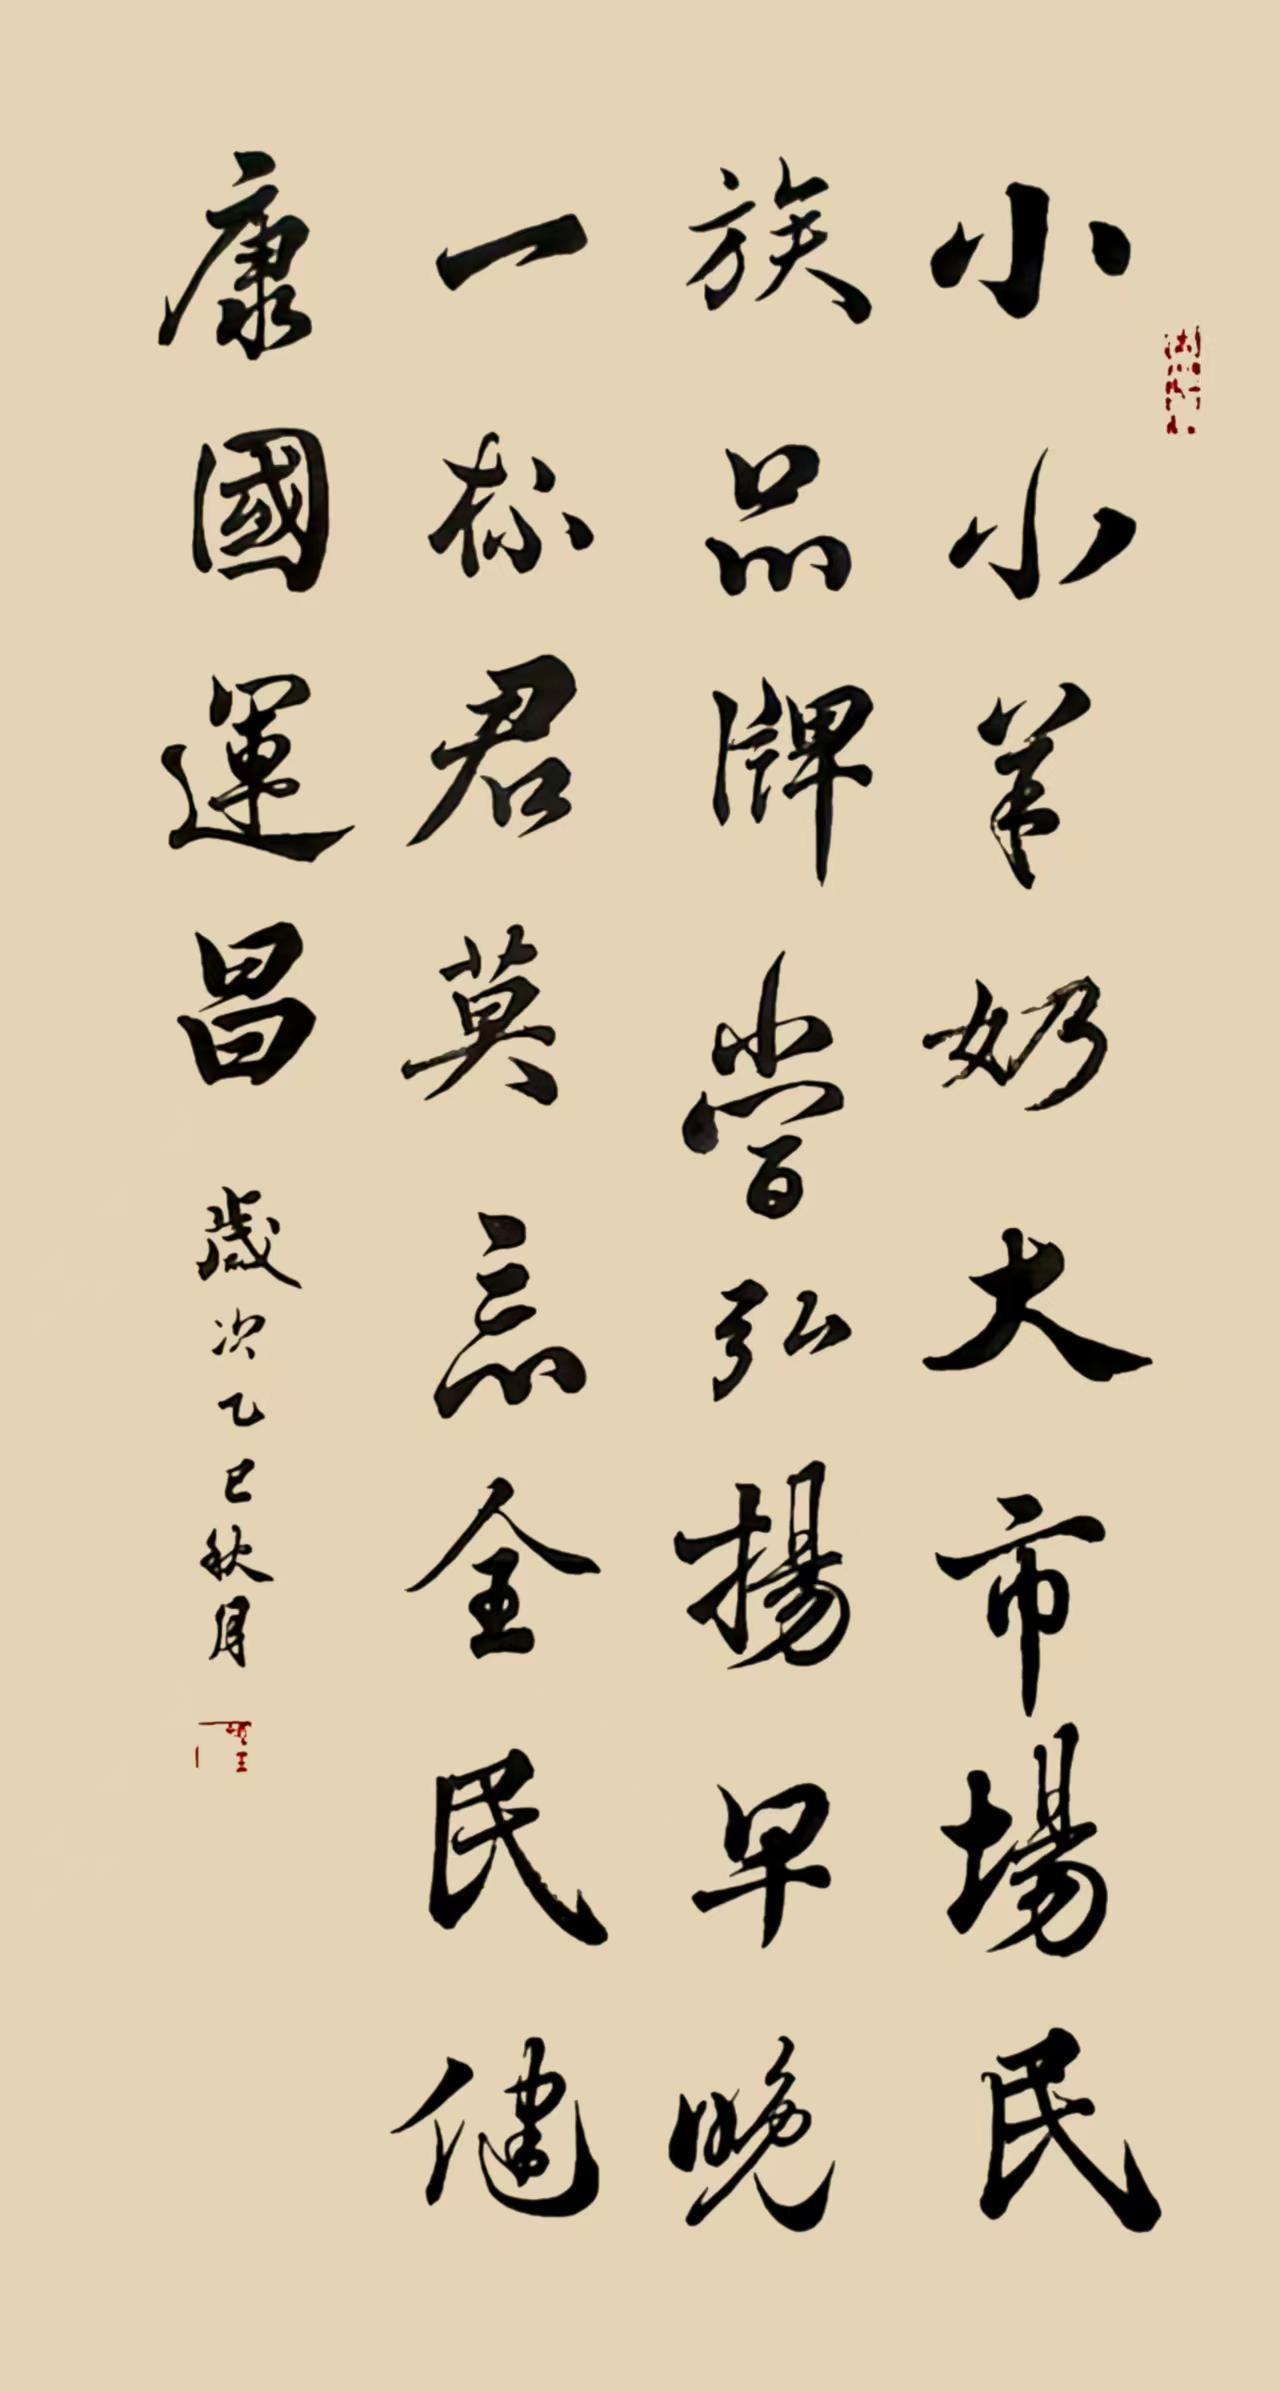 小小羊奶大市場民
族品牌當弘揚早晚
一杯君莫忘全民健
康國運昌
歲次乙巳秋月